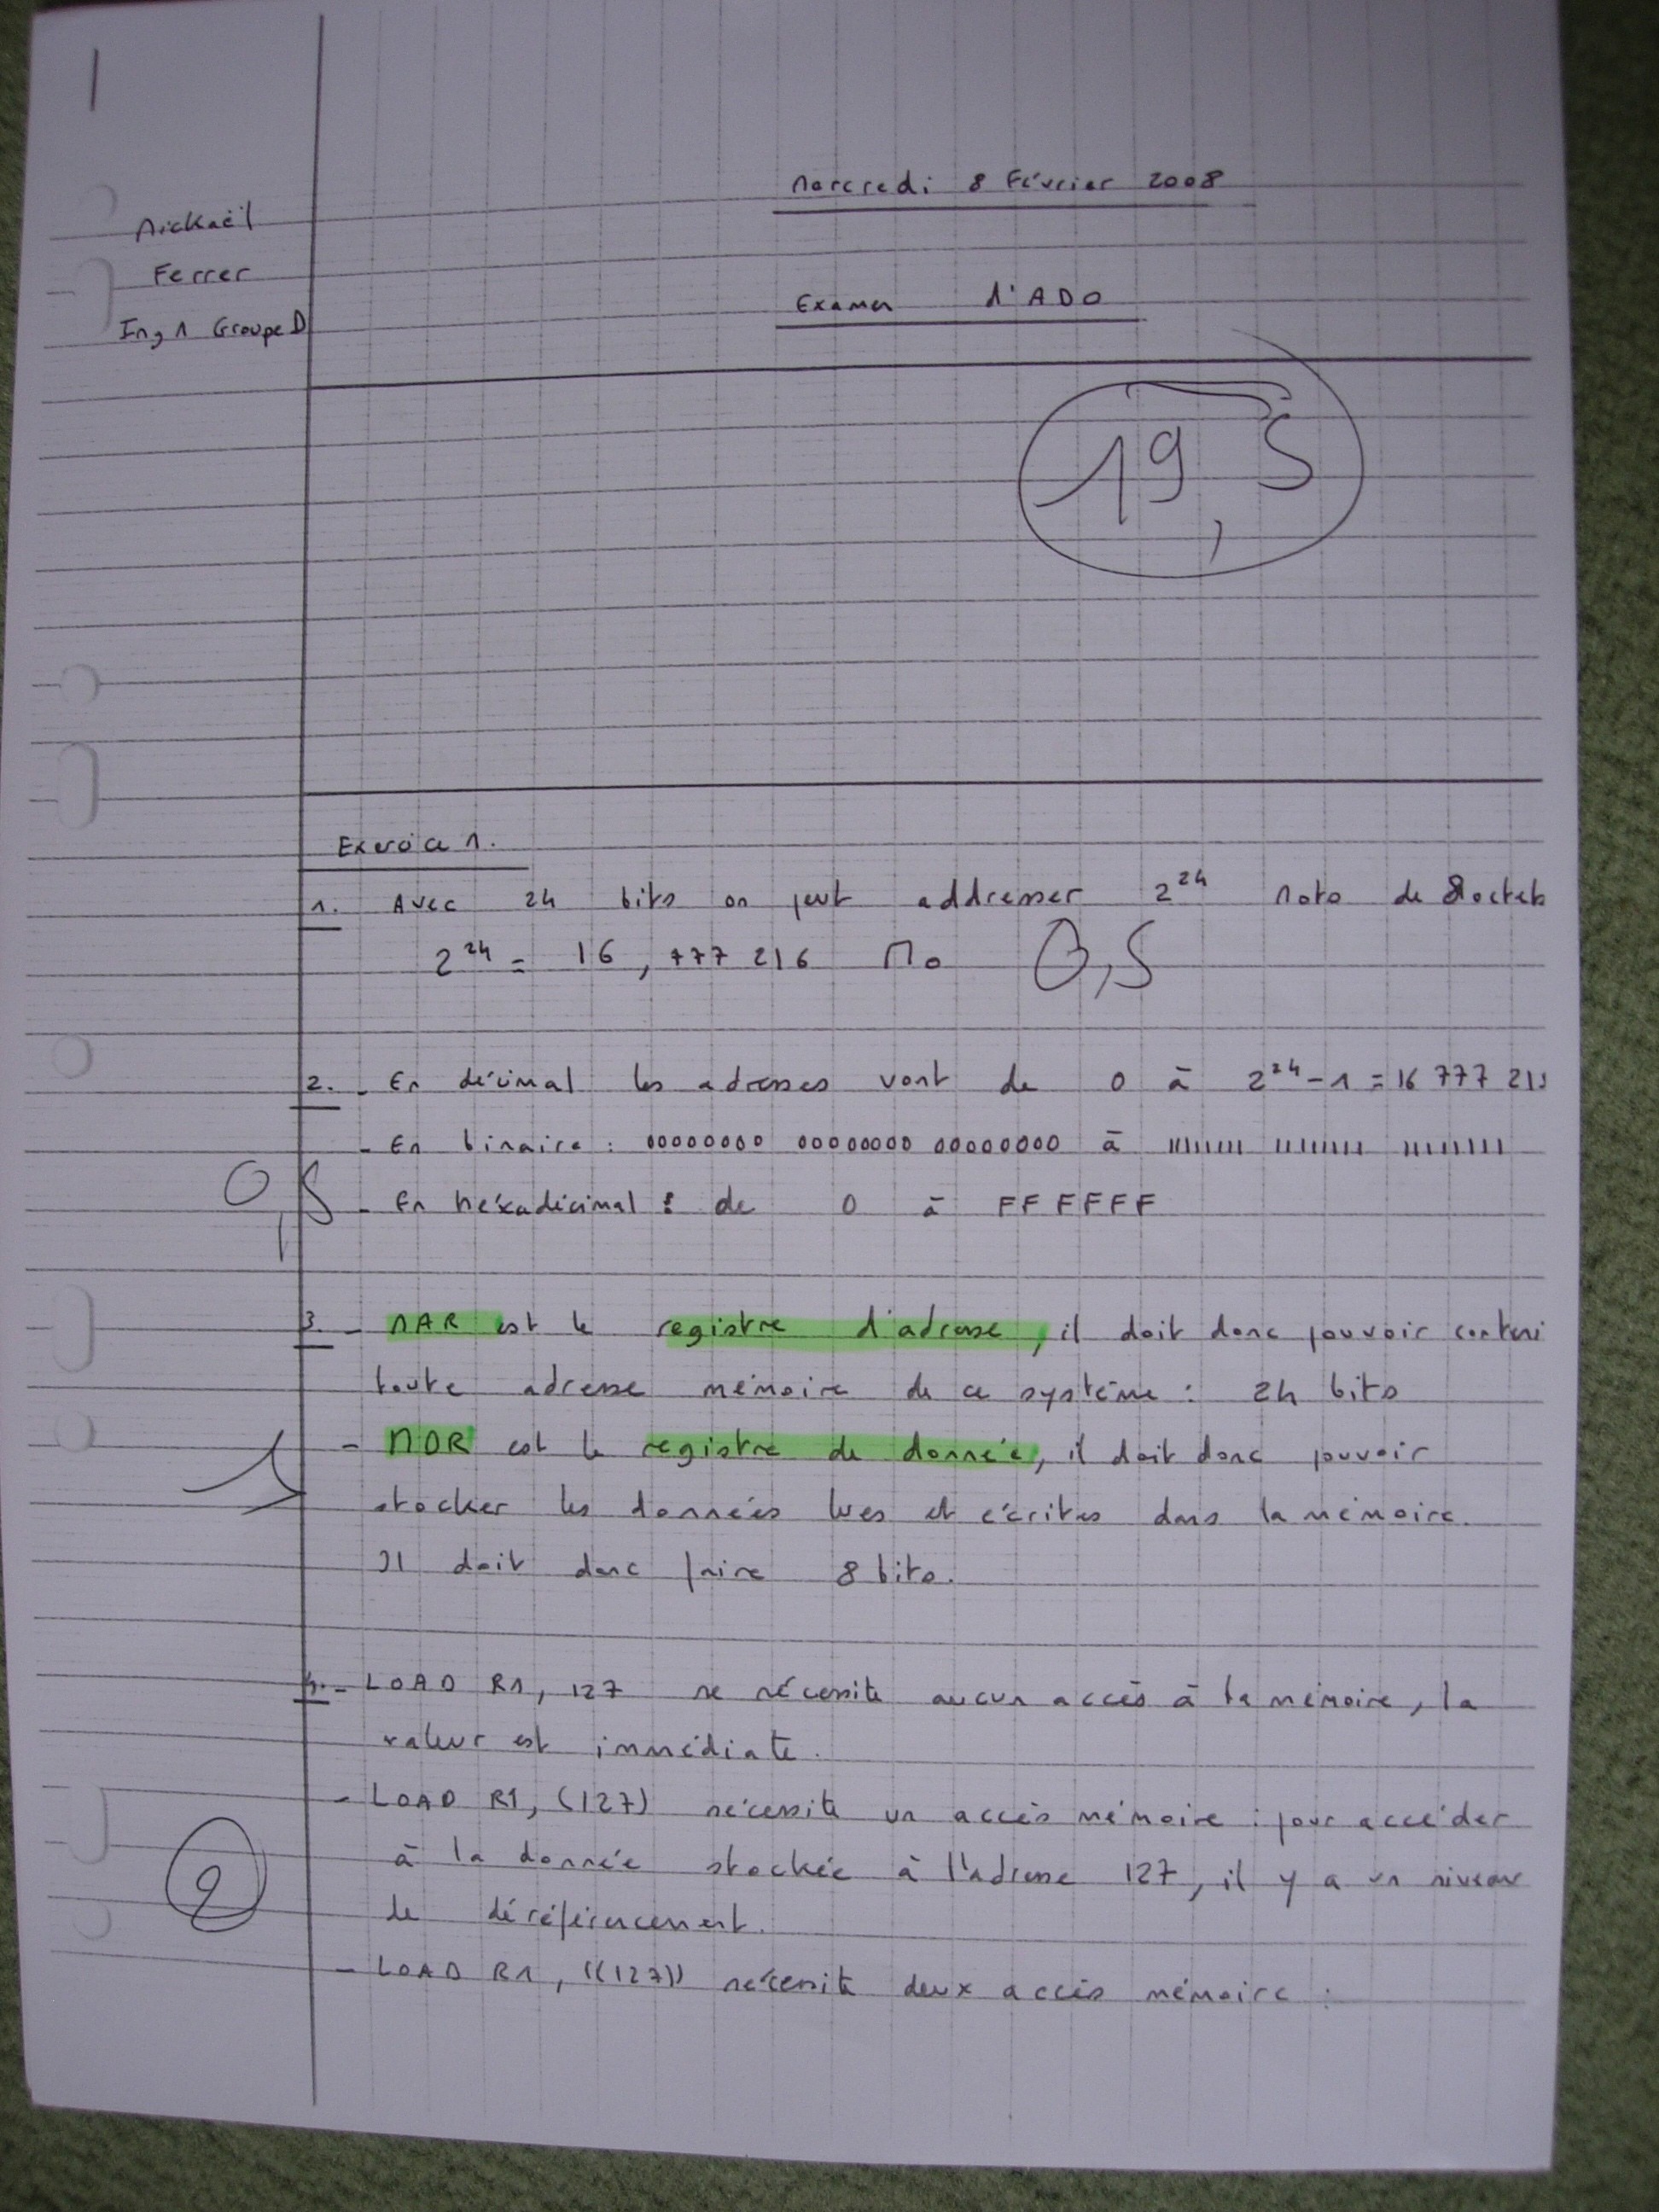 1
Mercredi 8 Février 2008
Mickaël
Ferrer
Ing 1 Groupe D
Examen d'ADO
19,5
Exercice 1.
1. Avec 24 bits on peut addresser 2^24 mots de 8octets
2^24 = 16,777 216 Mo 0,5
2. - En décimal les adresses vont de 0 à 2^24 - 1 = 16 777 215
- En binaire : 00000000 00000000 00000000 à 11111111 11111111 11111111
0,5
- En héxadécimal : de 0 à FFFFFF
3. - MAR est le registre d'adresse, il doit donc pouvoir conteni
toute adresse mémoire de ce système : 24 bits
- MDR est le registre de donnée, il doit donc pouvoir
1
stocker les données lues et écrites dans la mémoire.
Il doit donc faire 8 bits.
4. - LOAD R1, 127 ne nécessite aucun accès à la mémoire, la
valeur est immédiate.
- LOAD R1, (127) nécessite un accès mémoire : pour accéder
à la donnée stockée à l'adresse 127, il y a un niveau
2
de déréférencement.
- LOAD R1, ((127)) nécessite deux accès mémoire :